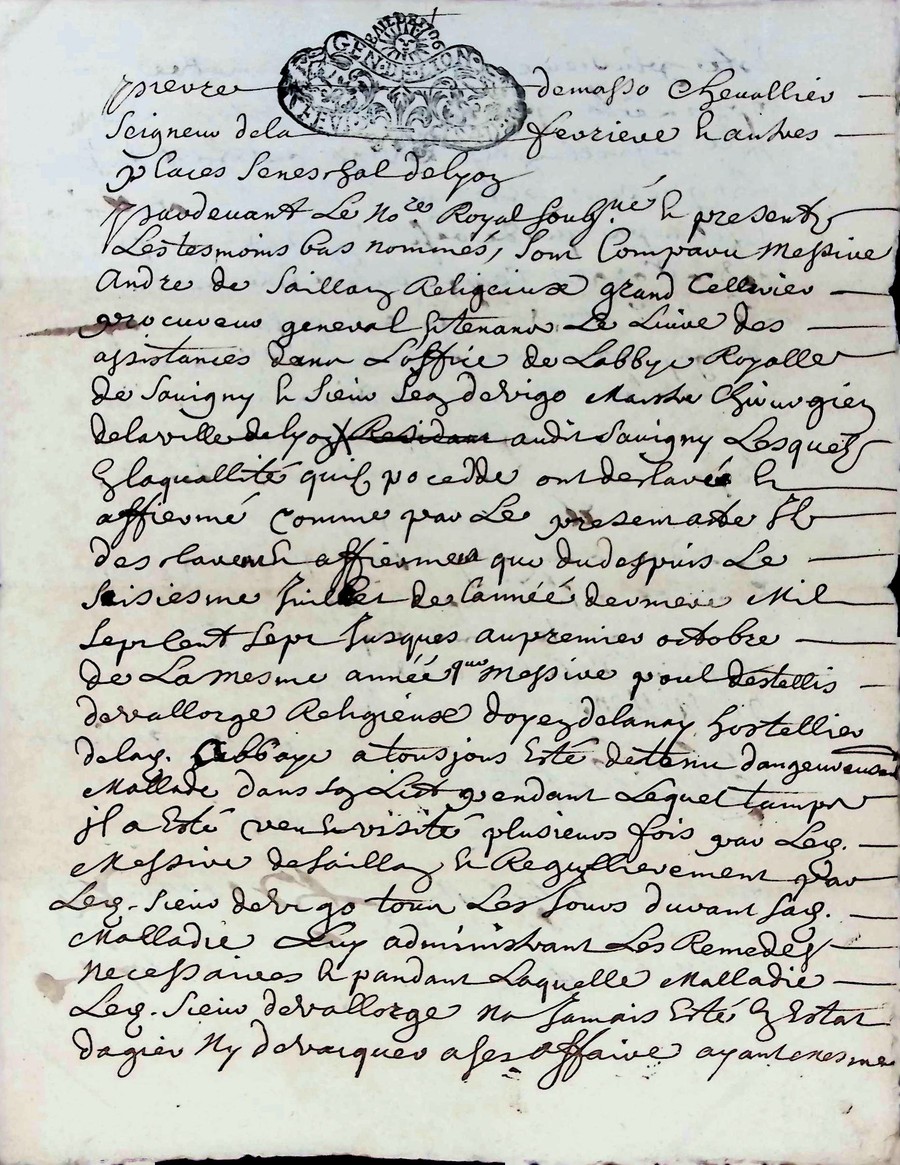 GEN. DE LION
pierre demasso Chevallier
Seigneur dela ferriere & autres
places Seneschal delyon
Pardevant Le No.re Royal soubs.né & presents
Les tesmoins bas nommés, sont Comparu Messire
Andre de Saillan Religieux grand Cellerier
procureur general & tenant Le Livre des
assistances dans L'office de Labbye Royalle
de Savigny & Sieur Jean devigo Maistre Chirurgien
delaville delyon Residant audit Savigny Lesquels
En laquallité quils pocedde ont desclaré &
affiermé Comme par Le present acte Ils
desclarent & affierment que du despuis Le
Seisiesme Juillet de l'année derniere Mil
Sept Cent Sept Jusques au premier octobre
de La mesme année que Messire poul destellis
devallorge Religieux doyen delanay hostellier
delad. Abbaye a tousjours Esté detenu dangeureusem.
Mallade dans son Lict pendant Lequel temps
il a Esté veu & visité plusieurs fois par Led.
Messire desaillan & Regullierement par
Led. Sieur devigo tous Les Jours durant sad.
Malladie Luy administrant Les Remedes
Necessaires & pandant Laquelle Malladie
Led. Sieur devallorge na Jamais Esté En Estat
dagier Ny devacquer a ses affaire ayant mesme